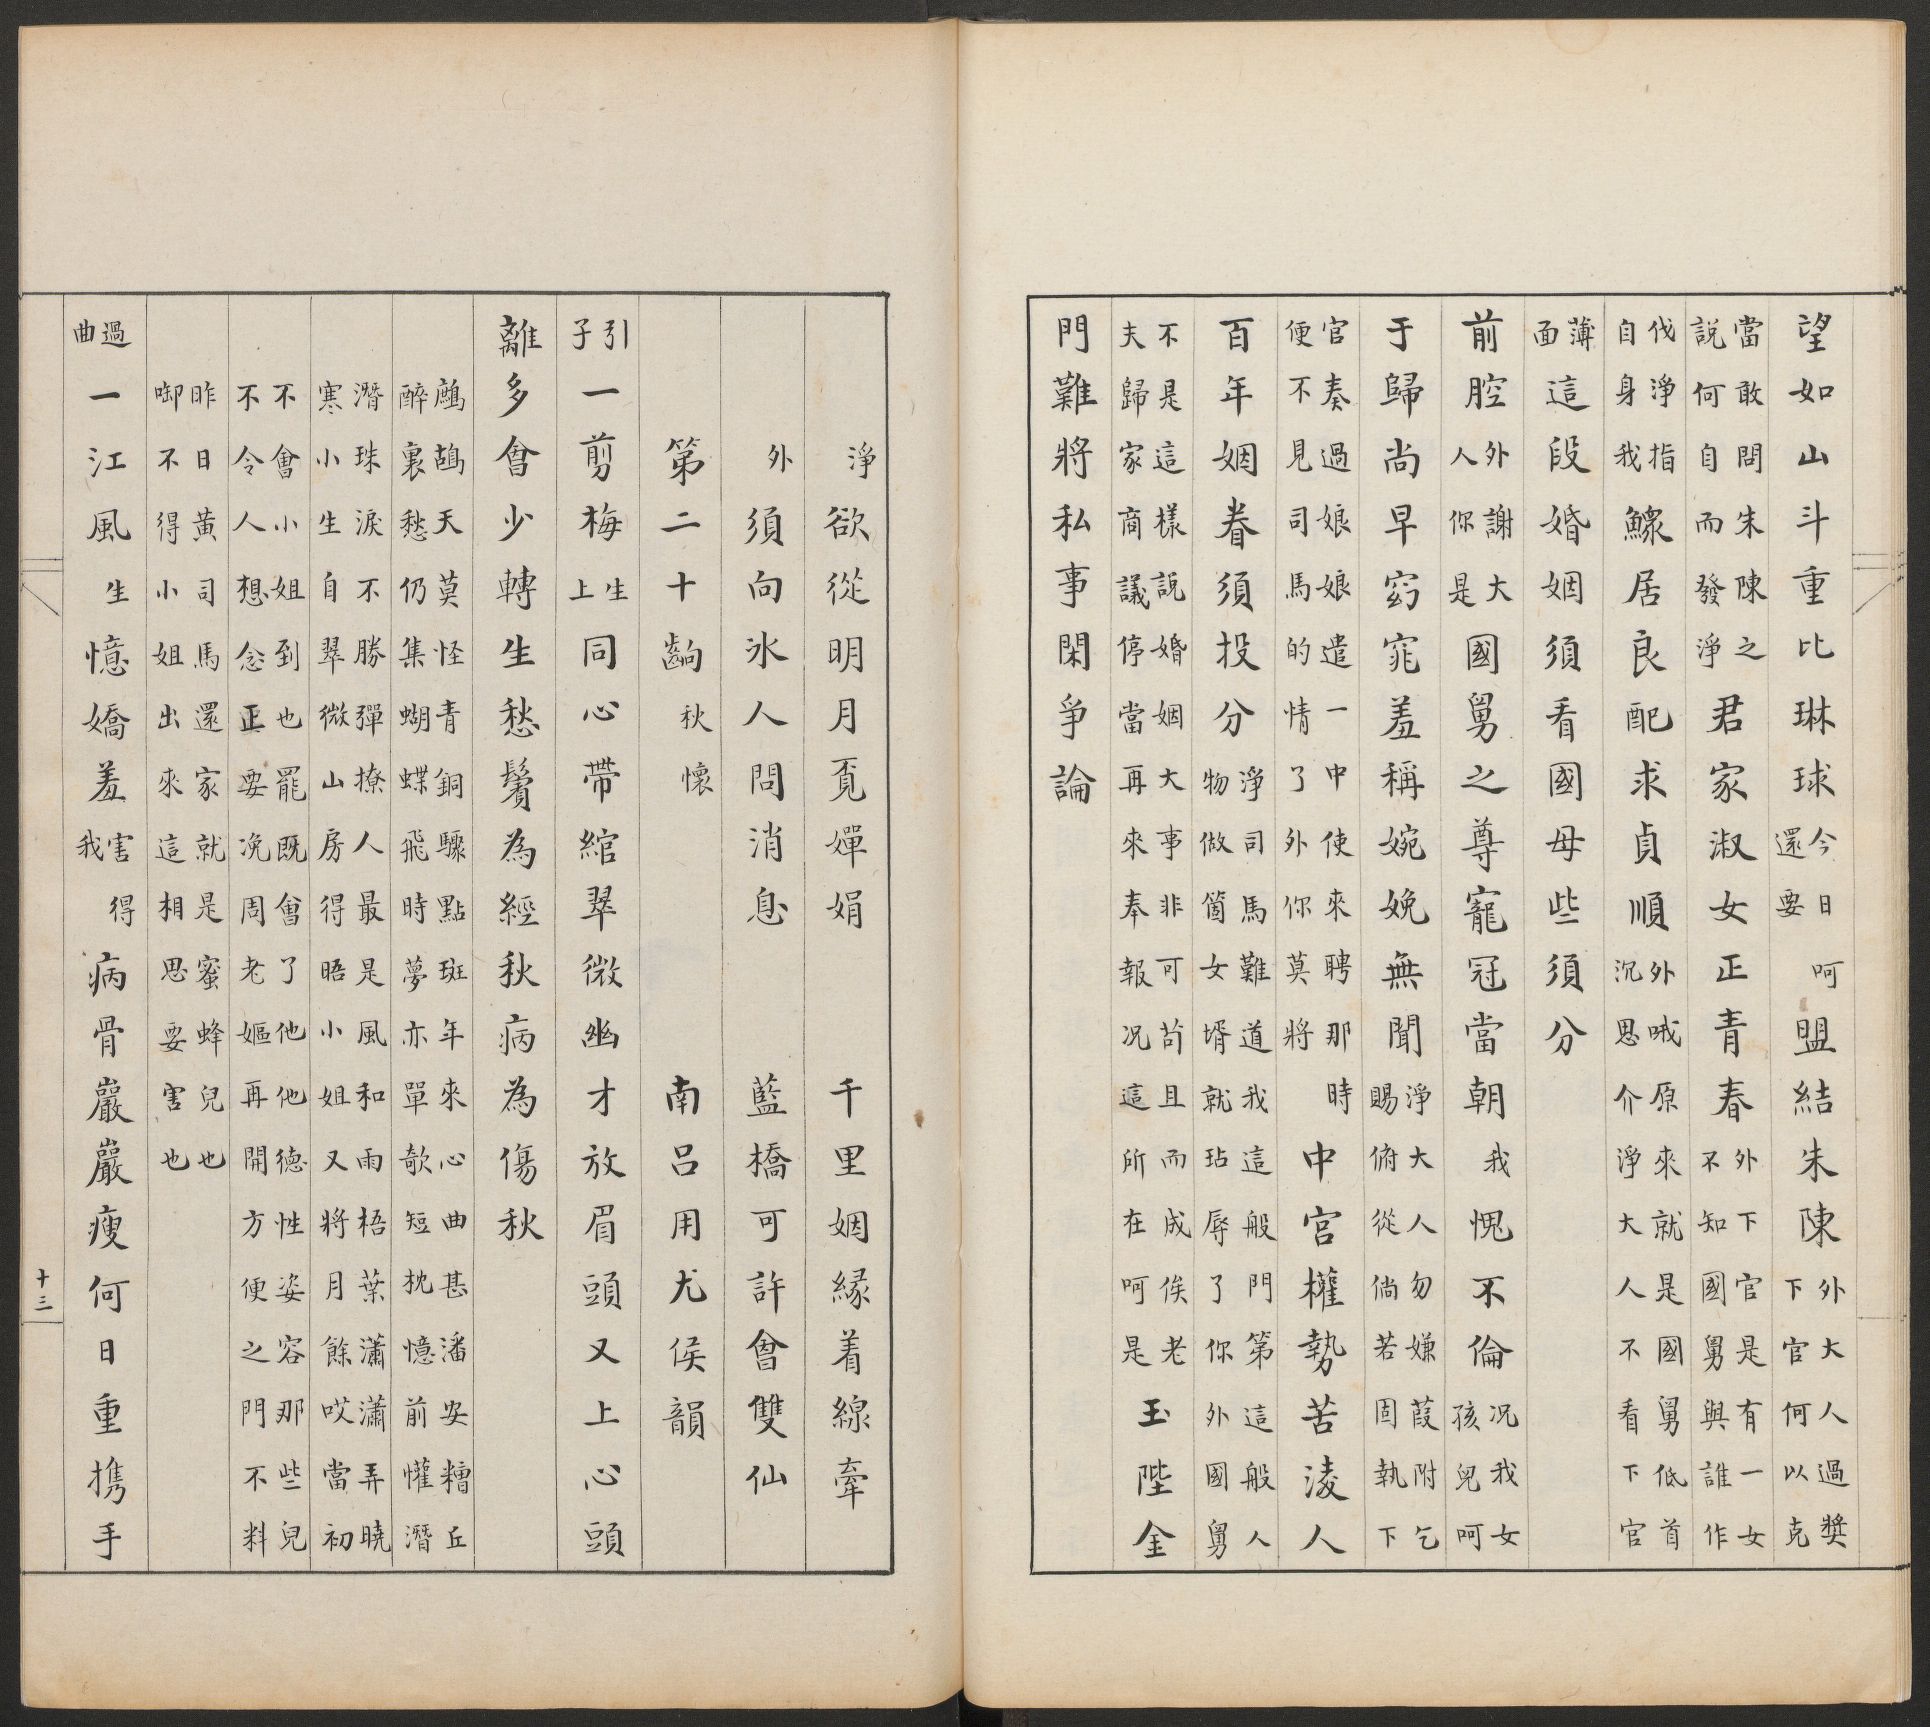 望如山斗重比琳球今日還要呵盟結朱陳外大人過獎下官何以克
當敢問朱陳之說何自而發淨君家淑女正青春外下官是有一女不知國舅與誰作
伐淨指自身我鰥居良配求貞順外哦原來就是國舅低首沉思介淨大人不看下官
薄面這段婚姻須看國母些須分
前腔外謝大人你是國舅之尊寵冠當朝我愧不倫况我女孩兒呵
于歸尚早窈窕羞稱婉娩無聞淨大人勿嫌葭附乞賜俯從倘若固執下
官奏過娘娘遣一中使來聘那時便不見司馬的情了外你莫將中宮權勢苦淩人
百年姻眷須投分淨司馬難道我這般門第這般人物做箇女壻就玷辱了你外國舅
不是這樣說婚姻大事非可苟且而成俟老夫歸家商議停當再來奉報况這所在呵是玉陛金
門難將私事閑爭論
淨欲從明月覔嬋娟 千里姻緣着線牽
外須向氷人問消息 藍橋可許會雙仙
第二十齣秋懷 南呂用尤侯韻
引子一剪梅生上同心帶綰翠微幽才放眉頭又上心頭
離多會少轉生愁鬢為經秋病為傷秋
鷓鴣天莫怪青銅驟點斑年來心曲甚潘安糟丘醉裏愁仍集蝴蝶飛時夢亦單欹短枕憶前懽潛
潛珠淚不勝彈撩人最是風和雨梧葉瀟瀟弄曉寒小生自翠微山房得晤小姐又將月餘哎當初
不會小姐到也罷既會了他他德性姿容那些兒不令人想念正要浼周老嫗再開方便之門不料
昨日黃司馬還家就是蜜蜂兒也啣不得小姐出來這相思要害也
過曲一江風生憶嬌羞害得我病骨巖巖瘦何日重携手
十三